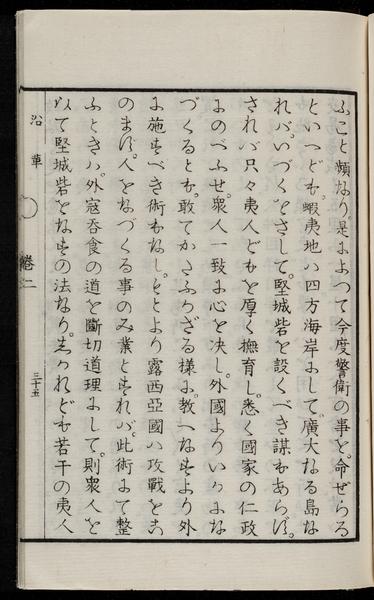 ふこと頻なり。是によつて今度警衛の事を。命ぜらる
といへども。蝦夷地ハ四方海岸にして。廣大なる島な
れバ。いづくをさして。堅城砦を設くべき謀もあらず。
されバ只々夷人どもを厚く撫育し。悉く國家の仁政
にのべふせ。衆人一致に心を决し。外國よりいかにな
づくるとも。敢てかたふかざる様に。教へなすより外
に施すべき術もなし。もとより露西亞國ハ攻戰をこ
のまず。人をなづくる事のみ業とすれバ。此術にて整
ふときハ。外寇呑食の道を斷切道理にして。則衆人を
以て堅城砦をなすの法なり。しかれども若干の夷人
沿革
卷二
三十五